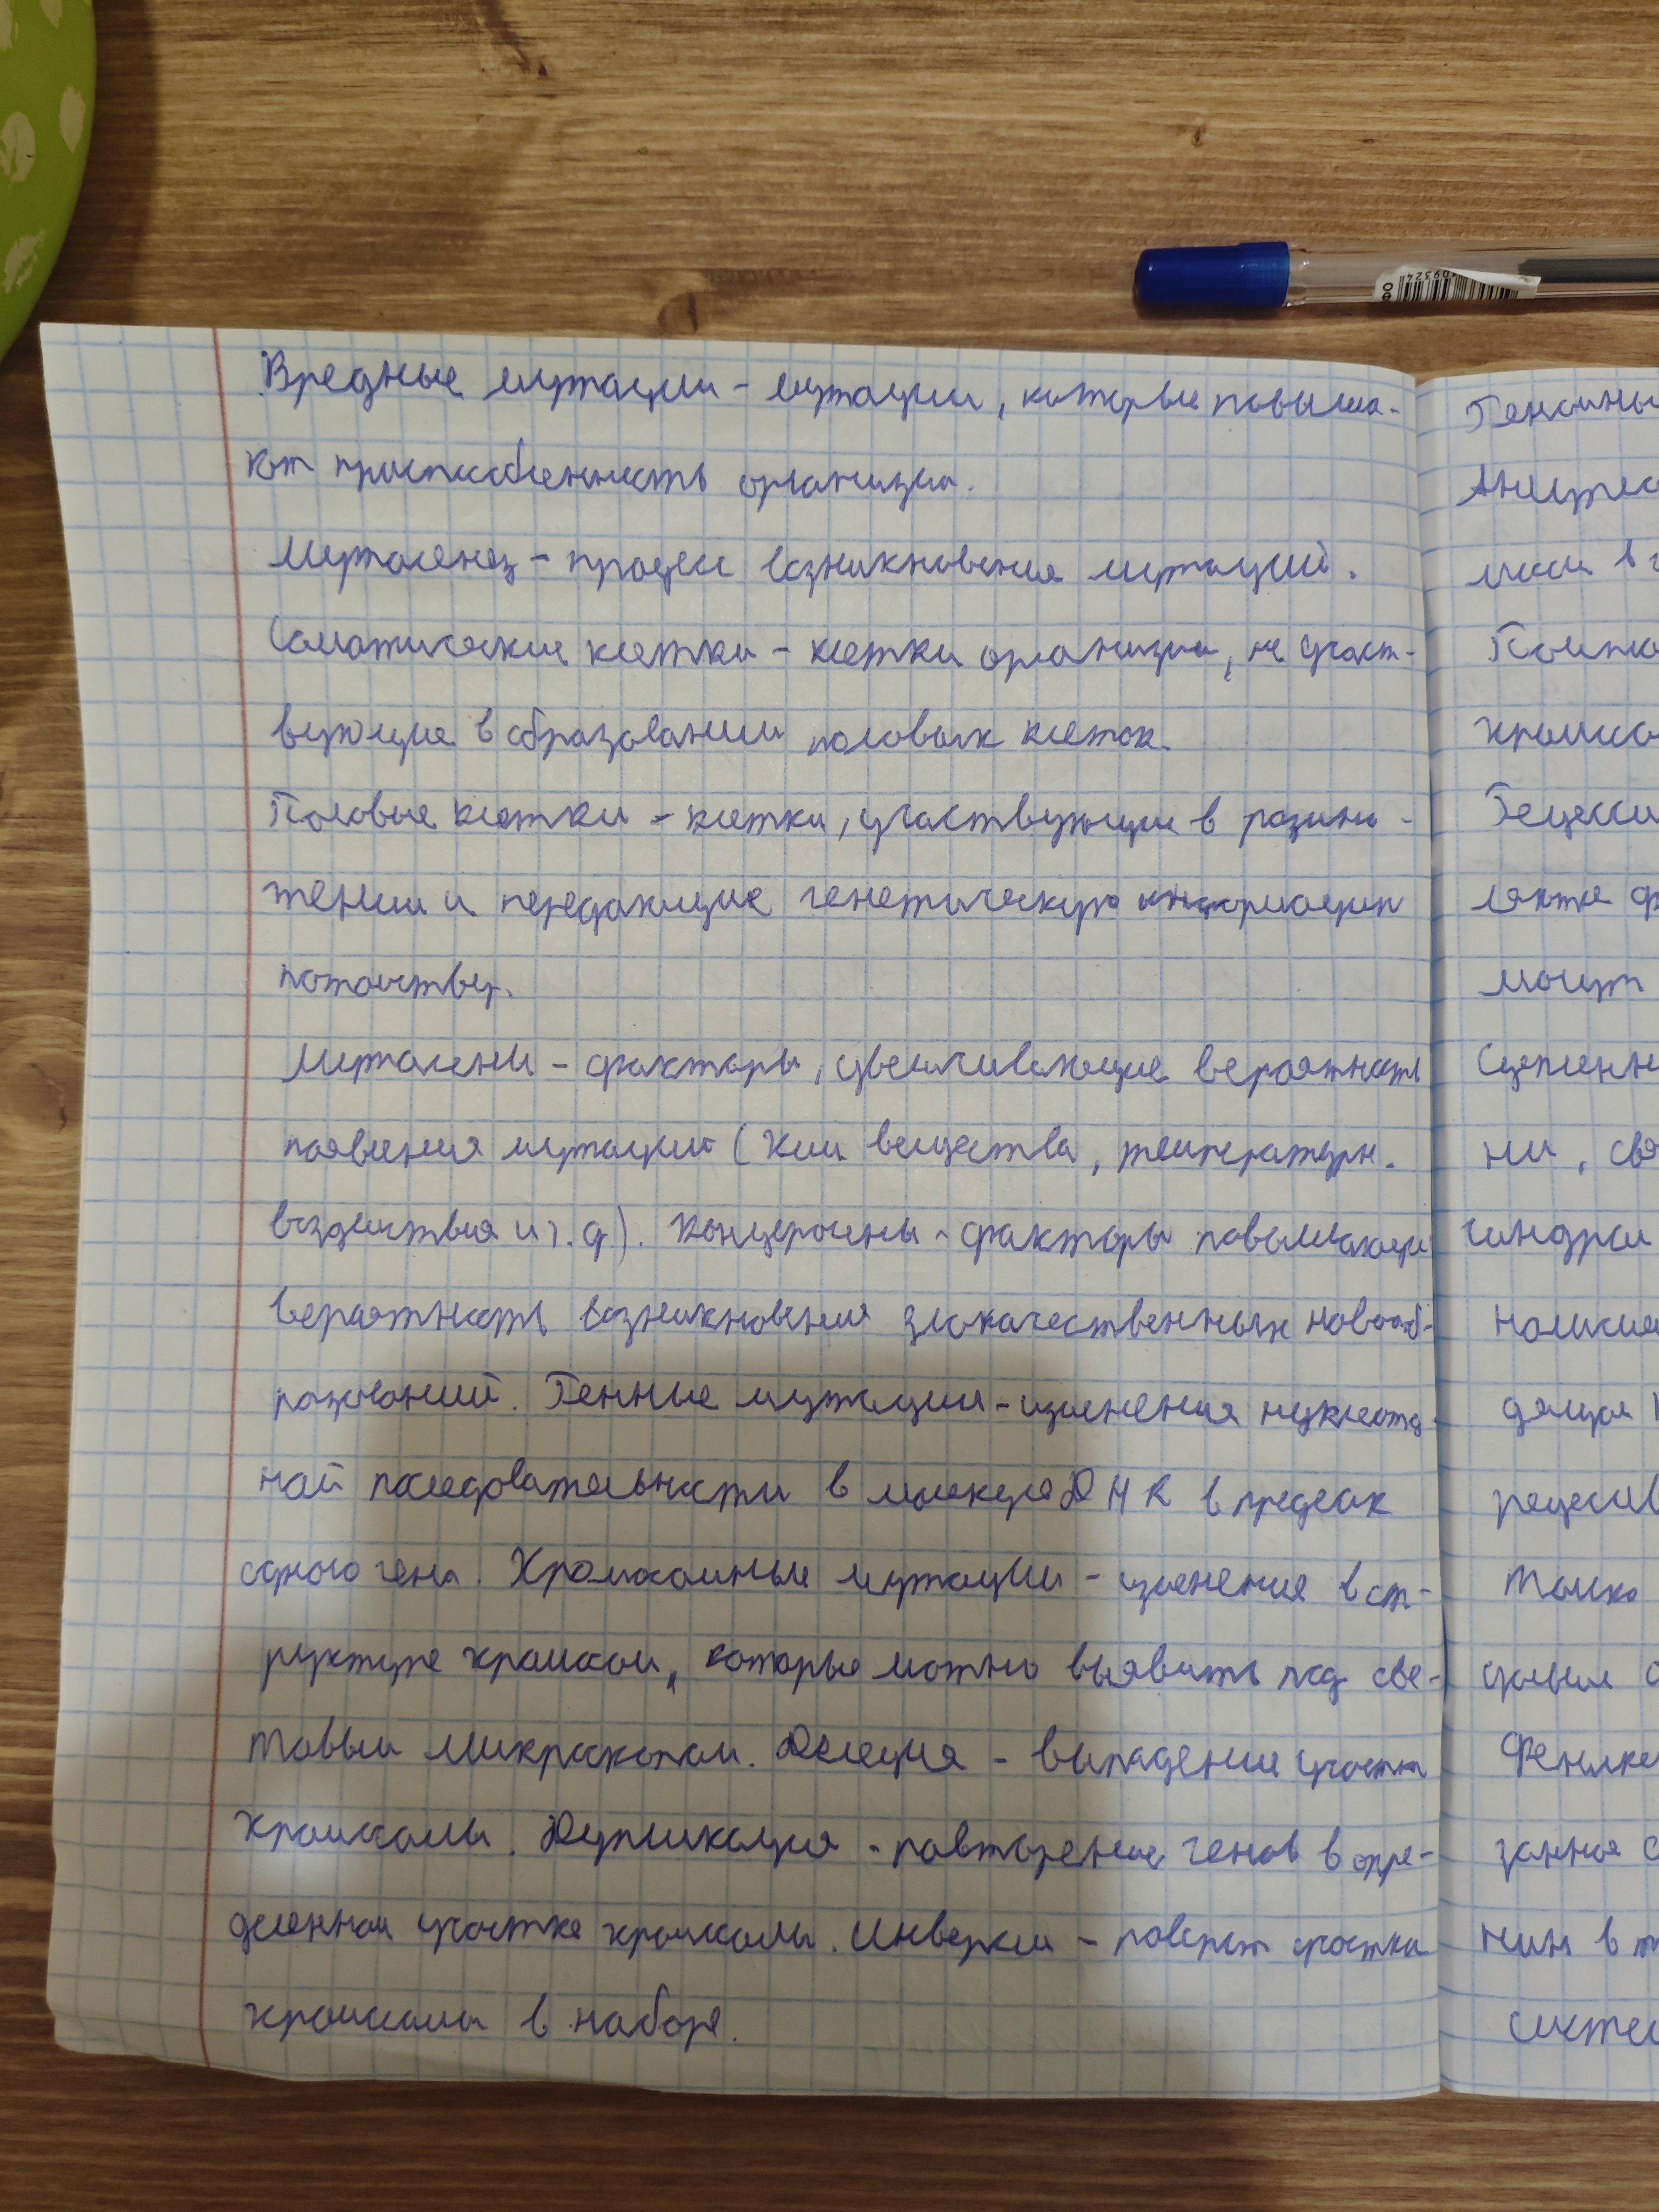 Вредные мутации - мутации, которые повыша-
ют приспособленность организма.
Мутагенез - процесс возникновения мутаций.
Соматические клетки - клетки организма, не участ-
вующие в образовании половых клеток.
Половые клетки - клетки, участвующие в размно-
жении и передающие генетическую информацию
потомству.
Мутагены - факторы, увеличивающие вероятность
появления мутаций (хим вещества, температурн.
воздействия и т.д). Концерогены - факторы повышающие
вероятность возникновения злокачественных новооб-
разований. Генные мутации - изменения нуклеотид
ной последовательности в молекуле ДНК в пределах
одного гена. Хромосомные мутации - изменения в ст-
руктуре хромосом, которые можно выявить под све-
товым микроскопом. Делеция - выпадение участка
хромосомы. Дупликация - повторение генов в опре-
деленном участке хромосомы. Инверсия - поворот участка
хромосомы в наборе.
Геномны
мосом в
хромосо
Рецесси
могут
Сцеплен
ни, свя
рецессив
только
Фенилке
занная с
нин в
систем